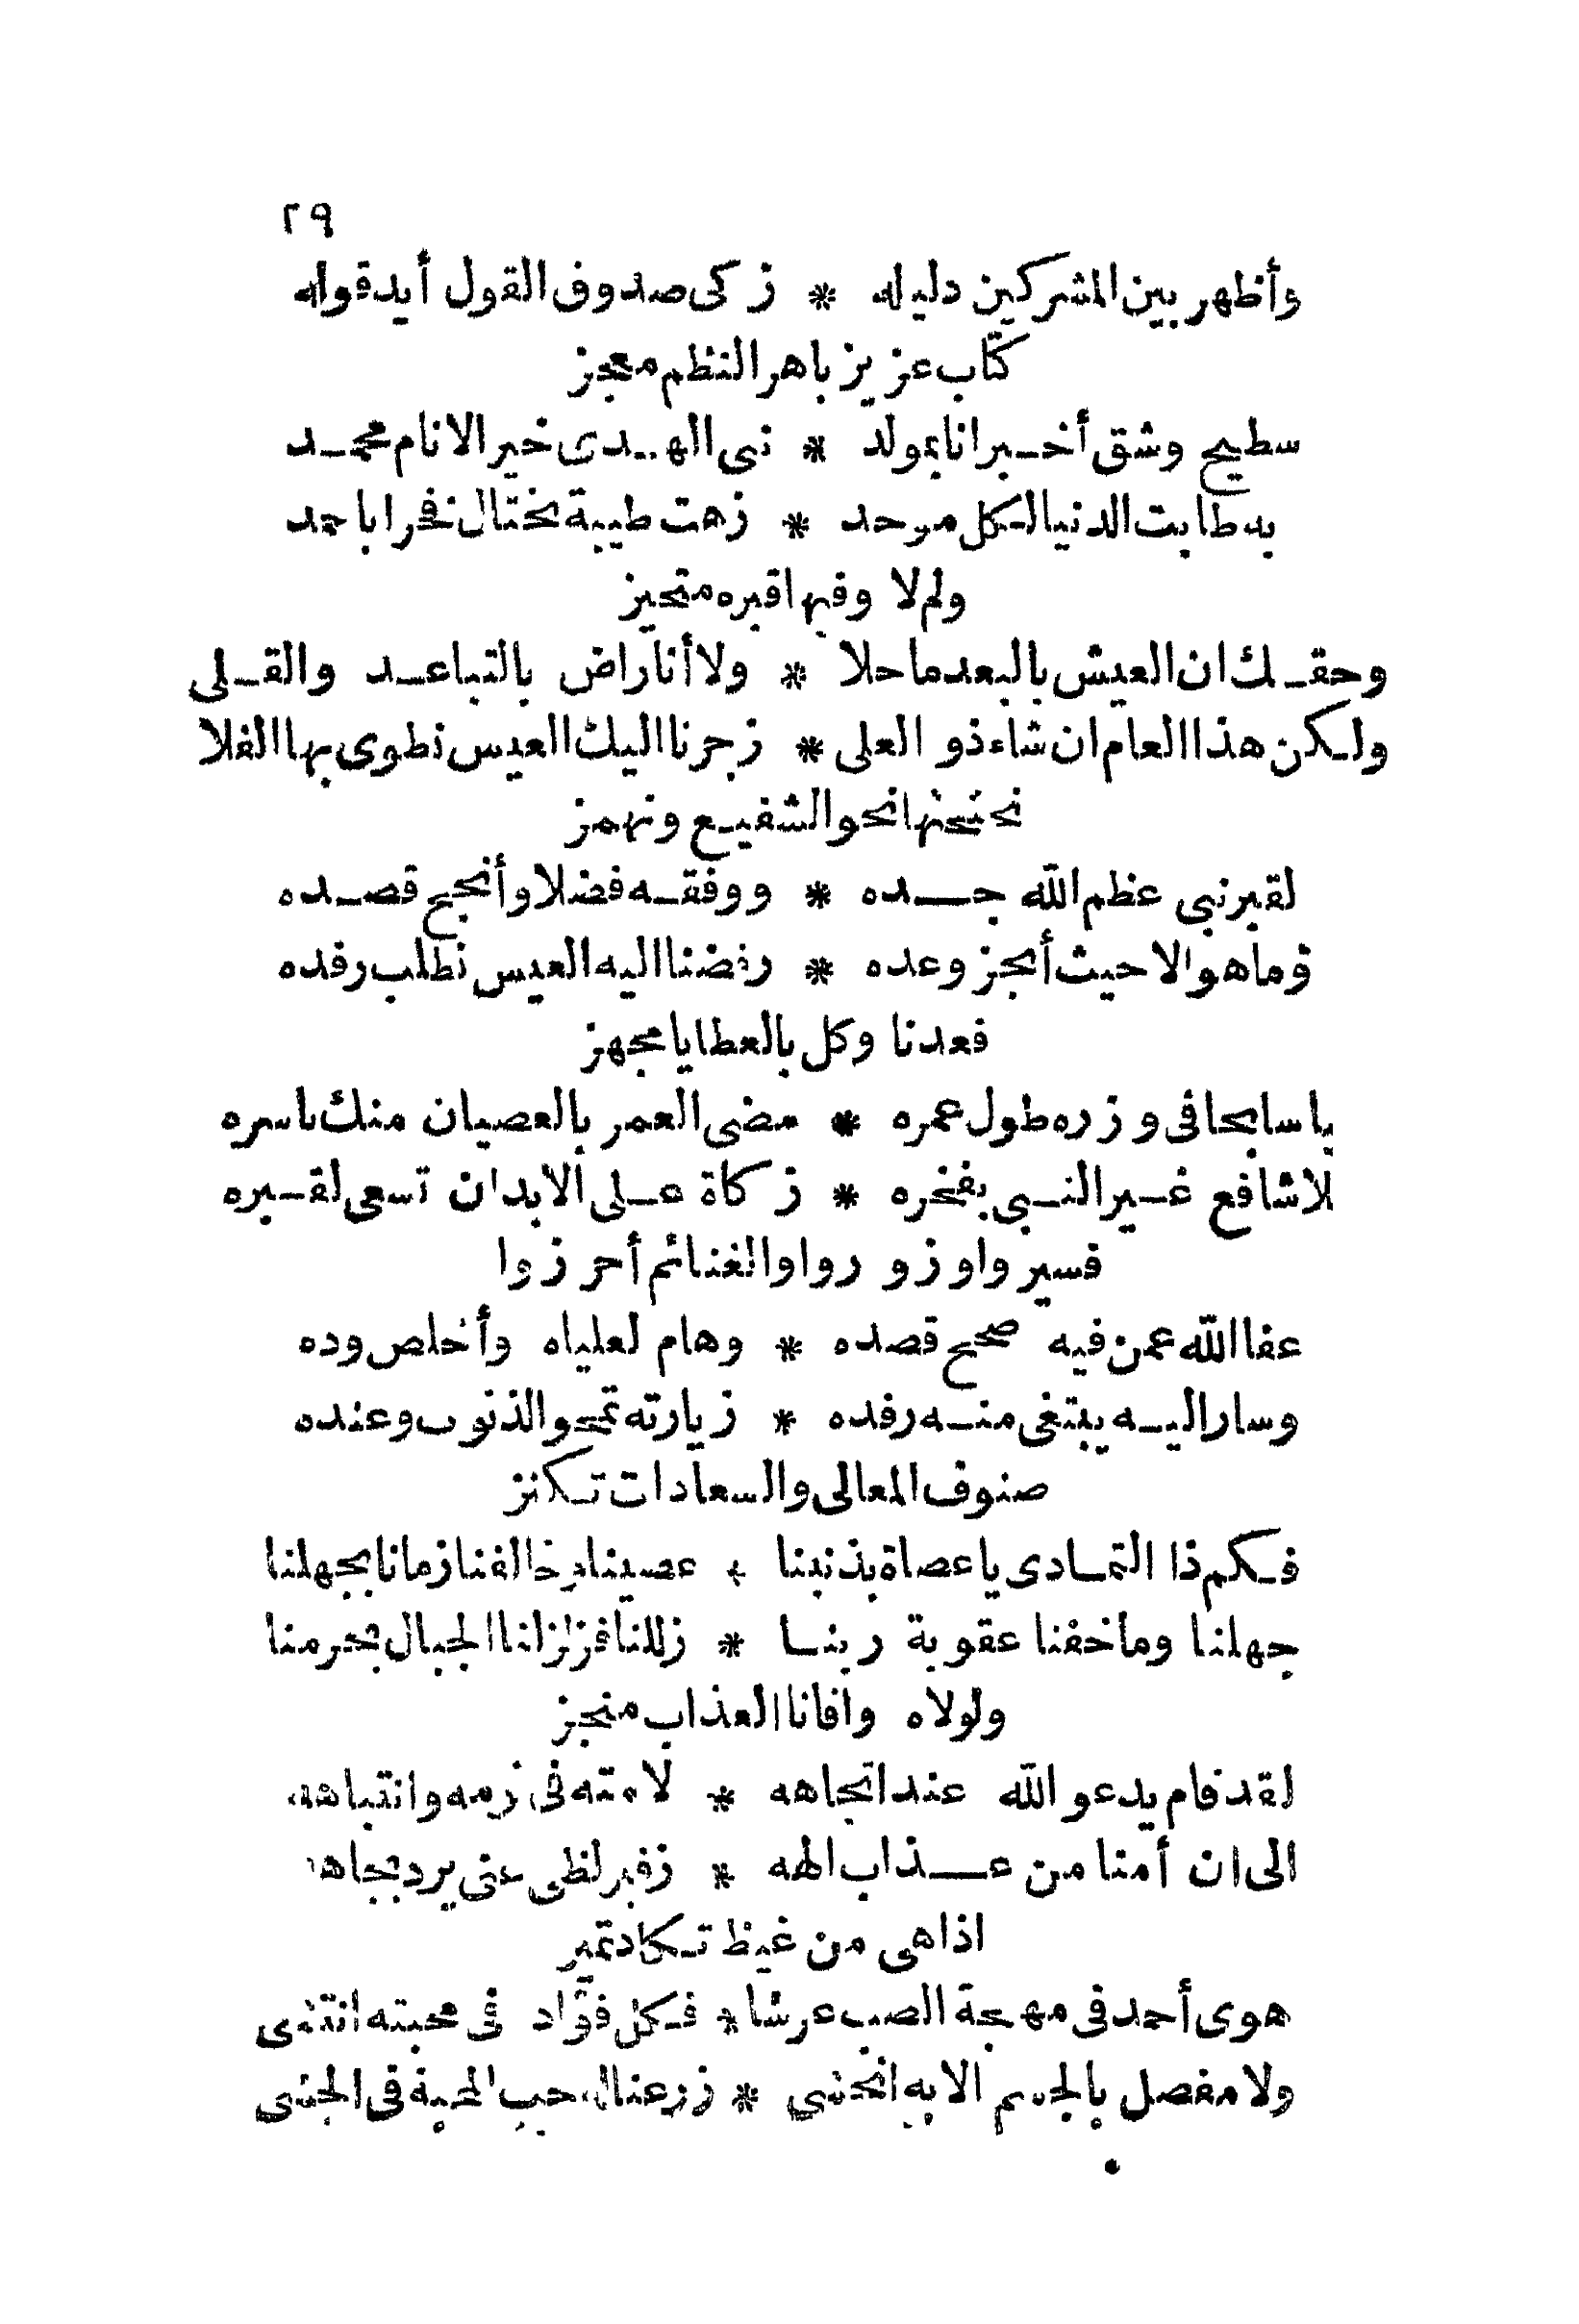 ٢٩
وأظهر بين المشركين دليله * زكى صدوق القول أيد قوله
كتاب عزيز باهر النظم معجز
سطيح وشق أخبرانا بمولد * نبى الهدى خير الانام محمد
به طابت الدنيا لكل موحد * زهت طيبة تختال فخرا باحمد
ولم لا وفيها قبره متحيز
وحقك ان العيش بالبعد ما حلا * ولا أنا راض بالتباعد والقلى
ولكن هذا العام ان شاء ذو العلى * زجرنا اليك العيس نطوى بها الفلا
نحنحنها نحو الشفيع ونهمز
لقبر نبى عظم الله جده * ووفقه فضلا وأنجح قصده
وما هو الا حيث أنجز وعده * رفضنا اليه العيس نطلب رفده
فعدنا وكل بالعطايا مجهز
يا سابحا فى وزره طول عمره * مضى العمر بالعصيان منك باسره
لا شافع غير النبى بفخره * زكاة على الابدان تسعى لقبره
فسيروا وزوروا والغنائم أحرزوا
عفا الله عمن فيه صحح قصده * وهام لعلياه وأخلص وده
وسار اليه يبتغى منه رفده * زيارته تمحو الذنوب وعنده
صنوف المعالى والسعادات تكنز
فكم ذا التمادى يا عصاة بذنبنا * عصينا وخالفنا زمانا بجهلنا
جهلنا وما خفنا عقوبة ربنا * زللنا فزلزلنا الجبال بجرمنا
ولولاه وافانا العذاب منجز
لقد قام يدعو الله عند اتجاهه * لامته فى نومه وانتباهه
الى ان أمنا من عذاب الهه * زفير لظى عنى يرد بجاهه
اذا هى من غيظ تكاد تميز
هوى أحمد فى مهجة الصب عرشا * فكل فؤاد فى محبته انتشى
ولا مفصل بالجسم الا به انحشى * زرعنا له حب المحبة فى الحشى